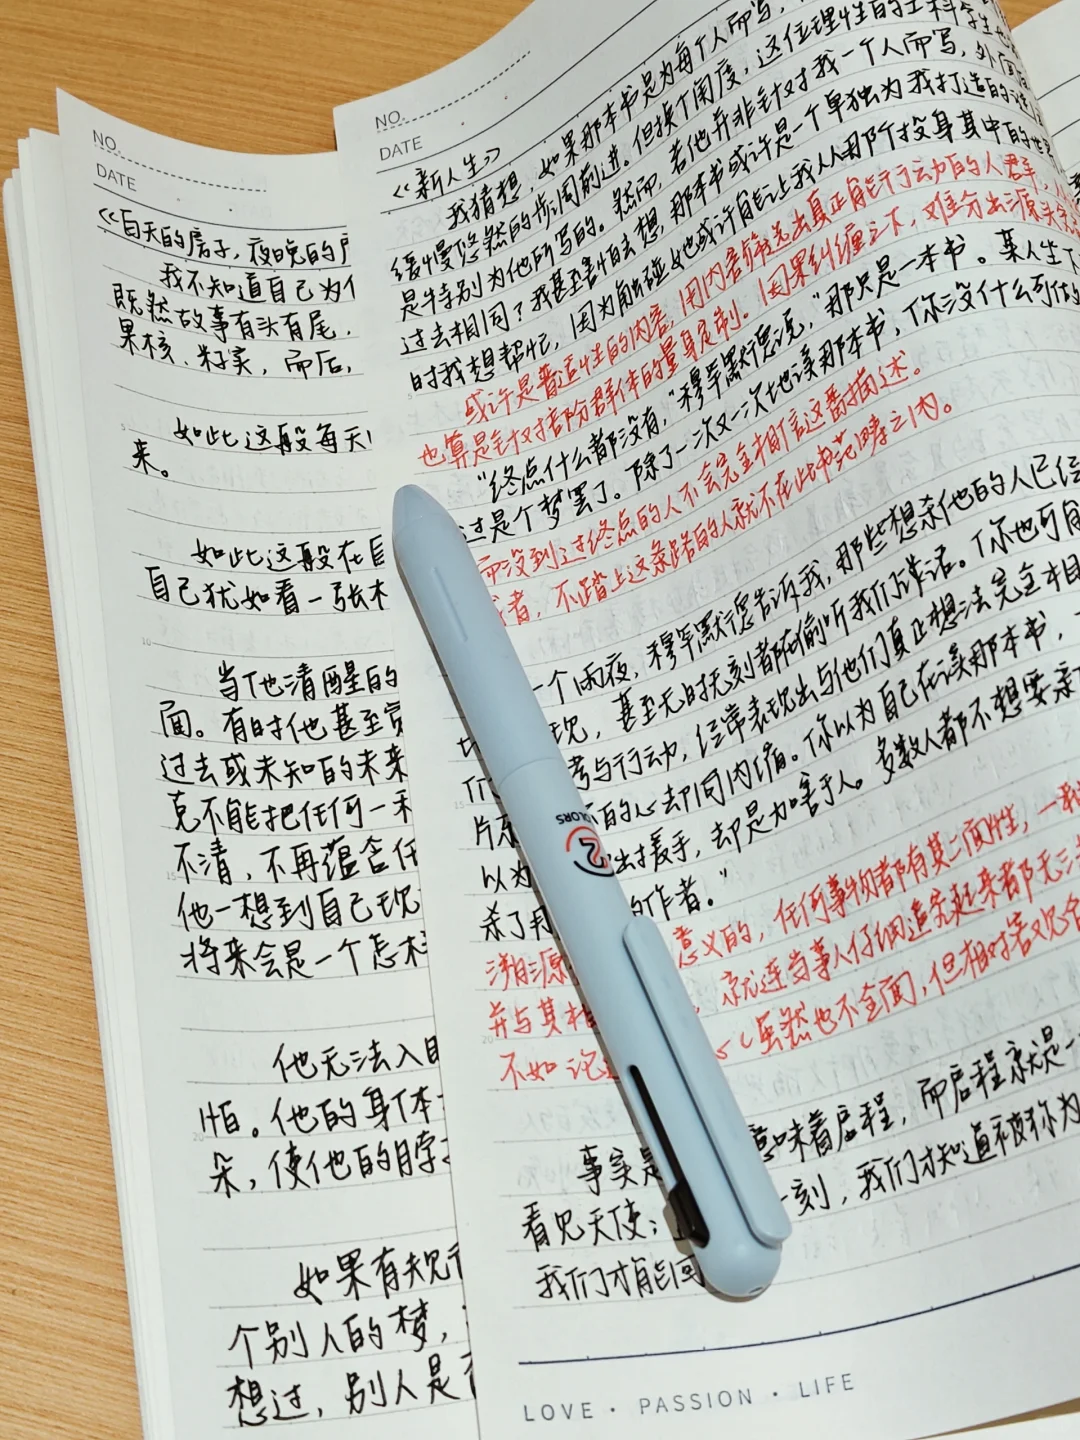 NO.
DATE
《白天的房子,夜晚的
我不知道自己为什
既然故事有头有尾,
果核、籽实,而后,
如此这般每天
来。
如此这般在自
自己犹如看一张木
当他清醒的
面。有时他甚至觉
过去或未知的未来
克不能把任何一
不清,不再蕴含任
他一想到自己现
将来会是一个怎样
他无法入眠
怕。他的身体
朵,使他的脖
如果有规
个别人的梦,
想过,别人是否
NO.
DATE
《新人生》
我猜想,如果那本书是为每个人而写,
缓慢悠然的步调前进。但换个角度,这位理性的工科学生也
是特别为他所写的。然而,若他并非针对我一个人而写,外面
过去相同?我甚至害怕去想,那本书或许是一个单独为我打造的谜
时我想帮忙,因为触碰她也或许能让我从那个投身其中的世
或许是普适性的内容,用内容筛选出真正能行动的人群,
也算是针对部分群体的量身定制。因果纠缠之下,难分出源头
“终点什么都没有,”穆罕默德说,“那只是一本书。某人坐下
过是个梦罢了。除了一次又一次地读那本书,你没什么可做的
而没到过终点的人不会完全相信这番描述。
者,不踏上这条路的人就不在此书范畴之内。
一个雨夜,穆罕默德告诉我,那些想杀他的人已经
现,甚至无时无刻都在偷听我们谈话。你也可能
考与行动,经常表现出与他们真正想法完全相
的心却向内缩。你以为自己在读那本书,
以为 出援手,却是加害于人。多数人都不想要亲
杀了 的作者。”
意义的,任何事物都有其二面性,一
溯源 就连当事人仔细追究起来都无
并与其相 虽然也不全面,但相对若
不如论
事实是 意味着启程,而启程就是一
看见天使; 一刻,我们才知道被称为
我们才能回
COLORS
2
LOVE · PASSION · LIFE